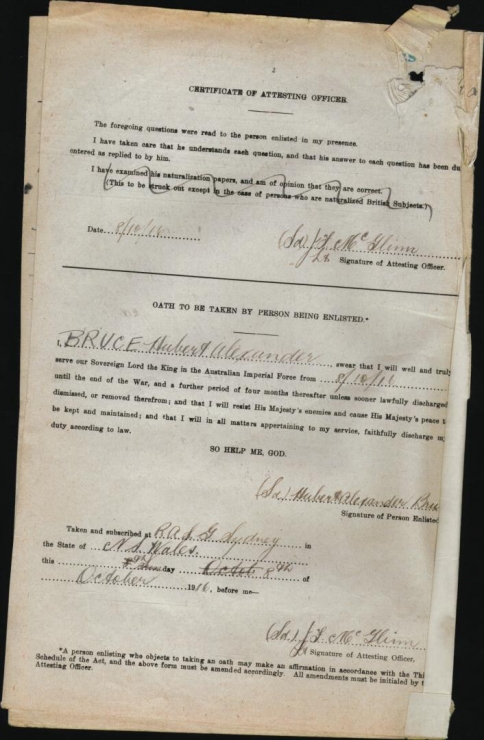 2
CERTIFICATE OF ATTESTING OFFICER
The foregoing questions were read to the person enlisted in my presence.
I have taken care that he understands each question, and that his answer to each question has been du
entered as replied to by him.
I have examined his naturalization papers, and am of opinion that they are correct.
(This to be struck out except in the case of persons who are naturalized British Subjects.)
Date 8/10/16
(Sd) J Mc Glinn
Lt. Signature of Attesting Officer.
OATH TO BE TAKEN BY PERSON BEING ENLISTED.*
I, BRUCE Hubert Alexander, swear that I will well and truly
serve our Sovereign Lord the King in the Australian Imperial Force from 8/10/16
until the end of the War, and a further period of four months thereafter unless sooner lawfully discharged
dismissed, or removed therefrom; and that I will resist His Majesty's enemies and cause His Majesty's peace t
be kept and maintained; and that I will in all matters appertaining to my service, faithfully discharge m
duty according to law.
SO HELP ME, GOD.
(Sd) Hubert Alexander Bru
Signature of Person Enlisted
Taken and subscribed at R.A.S.G. Sydney in
the State of N.S. Wales.
this day 8th of
October 1916, before me—
(Sd.) J Mc Glinn
Lt Signature of Attesting Officer.
*A person enlisting who objects to taking an oath may make an affirmation in accordance with the Thi
Schedule of the Act, and the above form must be amended accordingly. All amendments must be initialed by t
Attesting Officer.